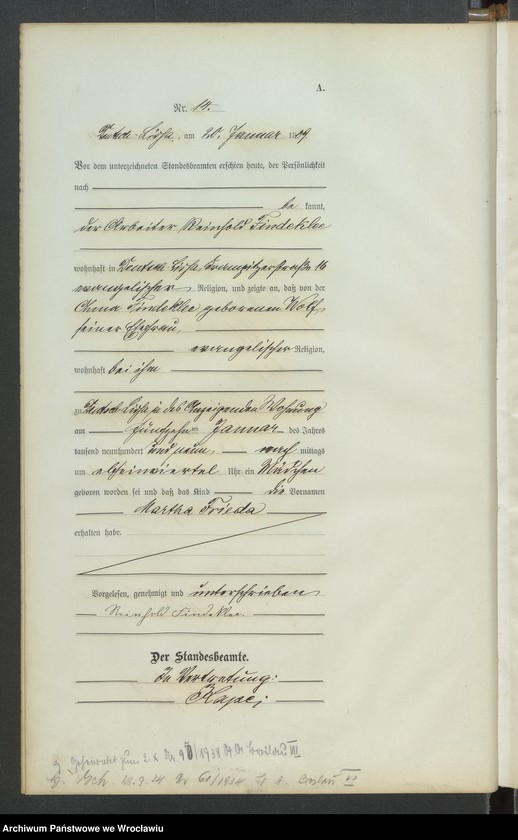 A.
Nr. 14.
Deutsch-Lissa, am 20. Januar 1909
Vor dem unterzeichneten Standesbeamten erschien heute, der Persönlichkeit
nach
be kannt,
der Arbeiter Reinhold Findeklee
wohnhaft in Deutsch Lissa,
evangelischer Religion, und zeigte an, daß von der
Anna Findeklee geborenen Wolf,
seiner Ehefrau,
evangelischer Religion,
wohnhaft bei ihm
zu Deutsch-Lissa in des Anzeigenden Wohnung
am fünfzehn Januar des Jahres
tausend neunhundert und neun, nach mittags
um ein viertel Uhr ein Mädchen
geboren worden sei und daß das Kind die Vornamen
Martha Frieda
erhalten habe.
Vorgelesen, genehmigt und unterschrieben
Reinhold Findeklee.
Der Standesbeamte.
In Vertretung:
1938
Archiwum Państwowe we Wrocławiu